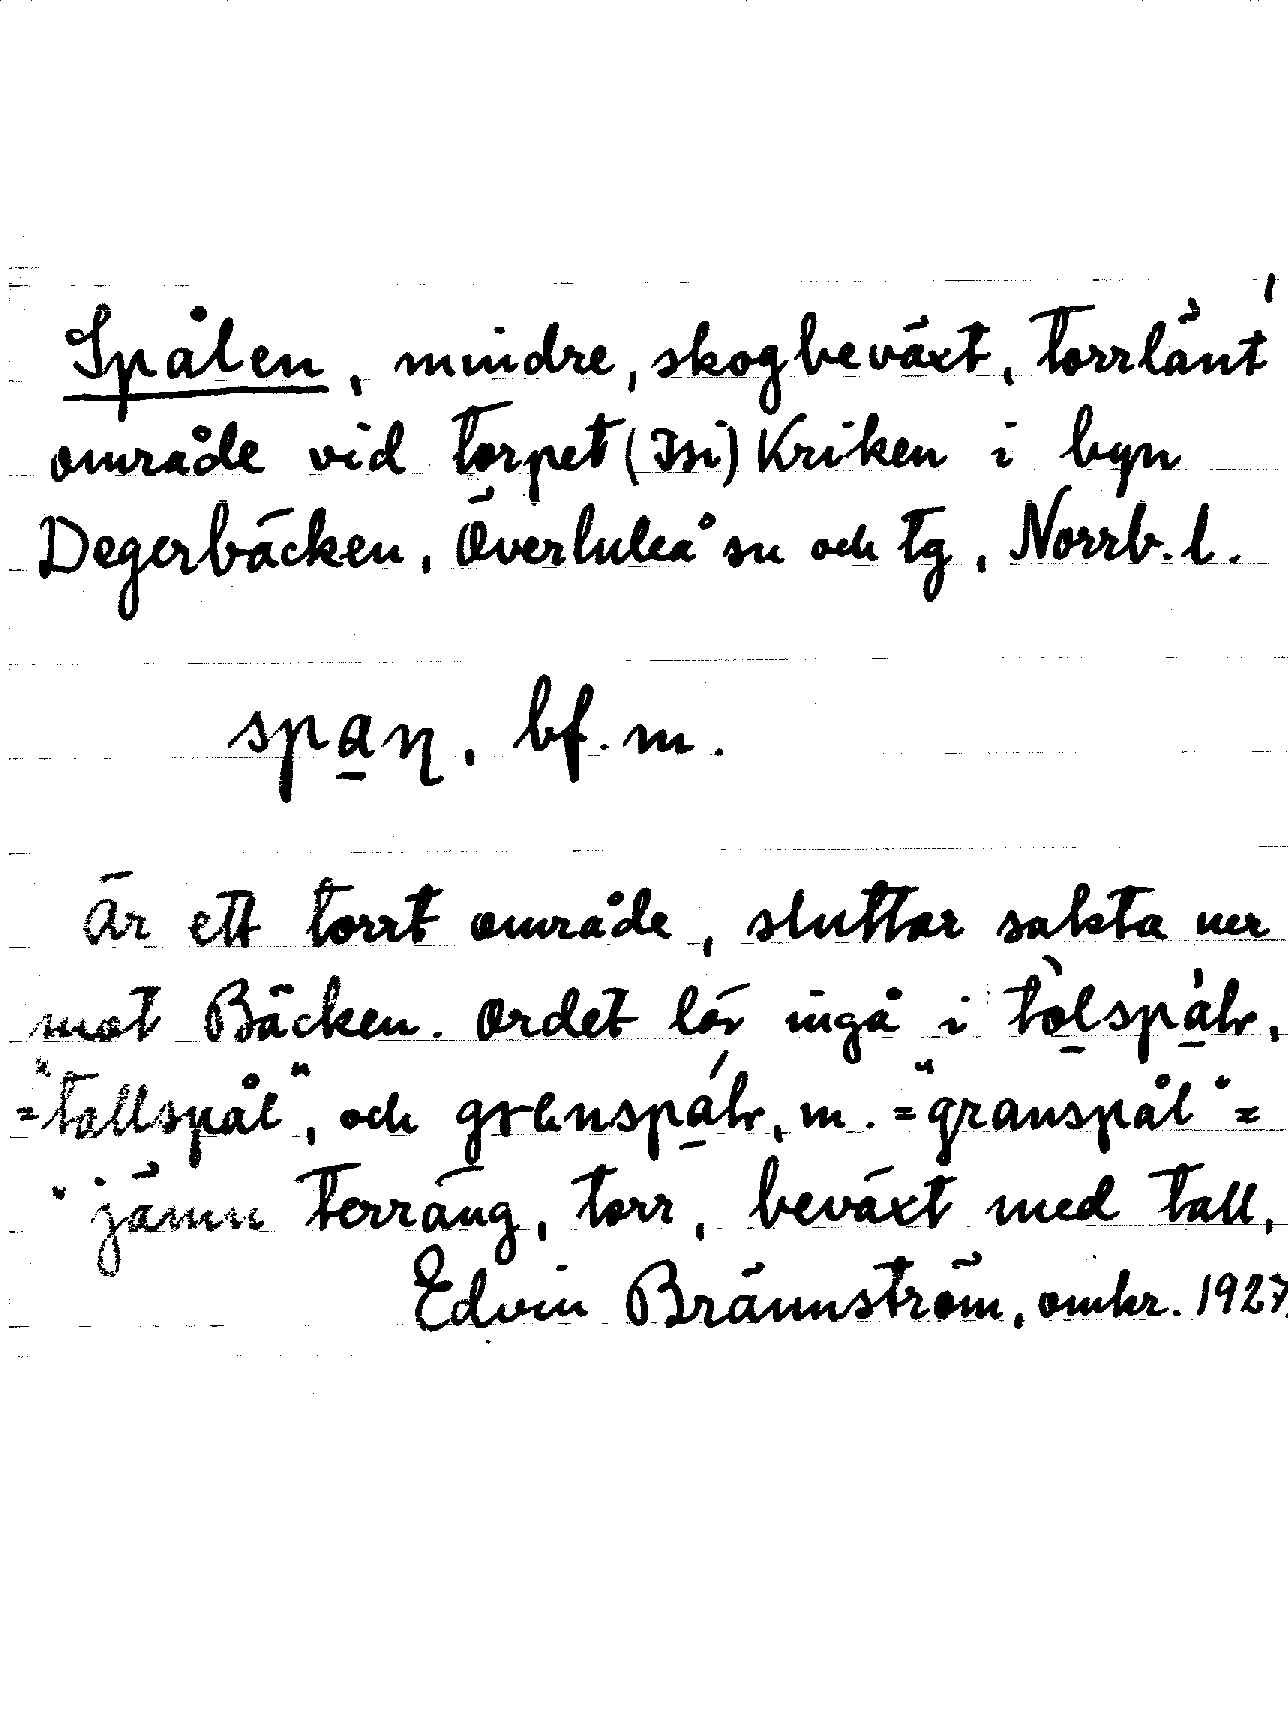 Spålen, mindre, skogbeväxt, torrlänt
område vid torpet (Isi) Kriken i byn
Degerbäcken, Överluleå sn och tg, Norrb. l.
spaƞ, bf. m.
Är ett torrt område, sluttar sakta ner
mot Bäcken. Ordet lär ingå i
="tallspål", och m. = "granspål" =
"jämn terräng, torr, beväxt med tall,
Edvin Brännström, omkr. 1927,